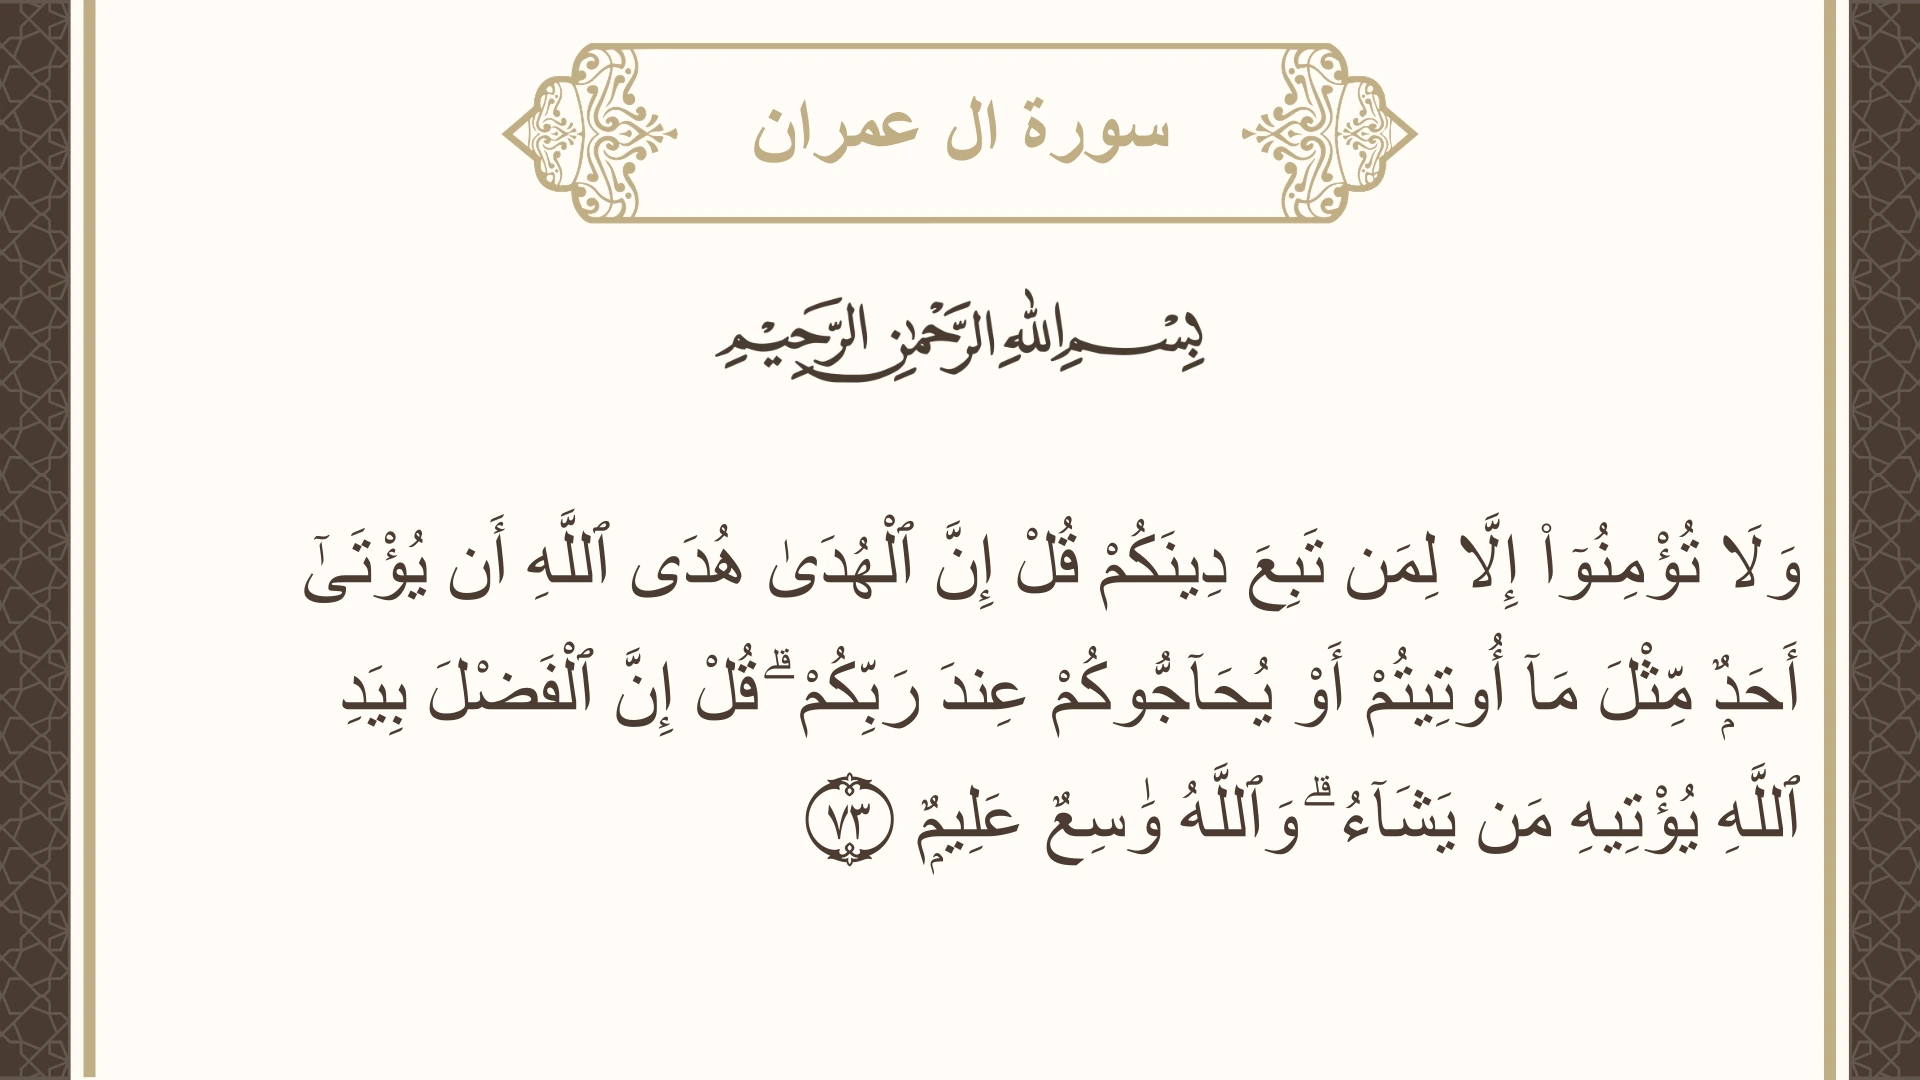 سورة ال عمران
بِسْمِ اللهِ الرَّحْمٰنِ الرَّحِيْمِ
وَلَا تُؤْمِنُوٓا۟ إِلَّا لِمَن تَبِعَ دِينَكُمْ قُلْ إِنَّ ٱلْهُدَىٰ هُدَى ٱللَّهِ أَن يُؤْتَىٰٓ
أَحَدٌۭ مِّثْلَ مَآ أُوتِيتُمْ أَوْ يُحَآجُّوكُمْ عِندَ رَبِّكُمْ ۗ قُلْ إِنَّ ٱلْفَضْلَ بِيَدِ
ٱللَّهِ يُؤْتِيهِ مَن يَشَآءُ ۗ وَٱللَّهُ وَٰسِعٌ عَلِيمٌۭ ٧٣